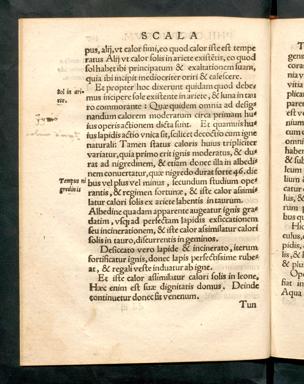 SCALA
pus, alij, vt calor fimi, eo quod calor iste est tempe
ratus Alij vt calor solis in ariete existẽtis, eo quod
sol habet ibi principatum & exaltationem suam,
quia ibi incipit mediocriter oriri & calescere.
Sol in ari-
ete.
Et propter hoc dixerunt quidam quod debe
mus incipere sole existente in ariete, & luna in tau
ro commorante: Quæ quidem omnia ad desig
nandum calorem moderatum circa primam hu
ius operis actionem dicta sunt. Et quamuis huius
lapidis actio vnica sit, scilicet decoctio cum igne
naturali: Tamen status caloris huius tripliciter
variatur, quia primo erit ignis moderatus, & du-
rat ad nigredinem, & etiam donec illa in albedi
nem conuertatur, quæ nigredo durat forte 46. die
Tempus ni
gredinis
bus vel plus vel minus, secundum studium ope-
rantis, & regimen fortunæ, & iste calor assimi-
latur calori solis ex ariete labentis in taurum.
Albedine quadam apparente augeatur ignis gra
datim, vsq; ad perfectam lapidis exsiccationem
seu incinerationem, & iste calor assimilatur calori
solis in tauro, discurrentis in geminos.
Desiccato vero lapide & incinerato, iterum
fortificatur ignis, donec lapis perfectissime rube-
at, & regali veste induatur ab igne.
Et iste calor assimilatur calori solis in leone,
Hæc enim est suæ dignitatis domus, Deinde
continuetur donec sit venenum.
Tun